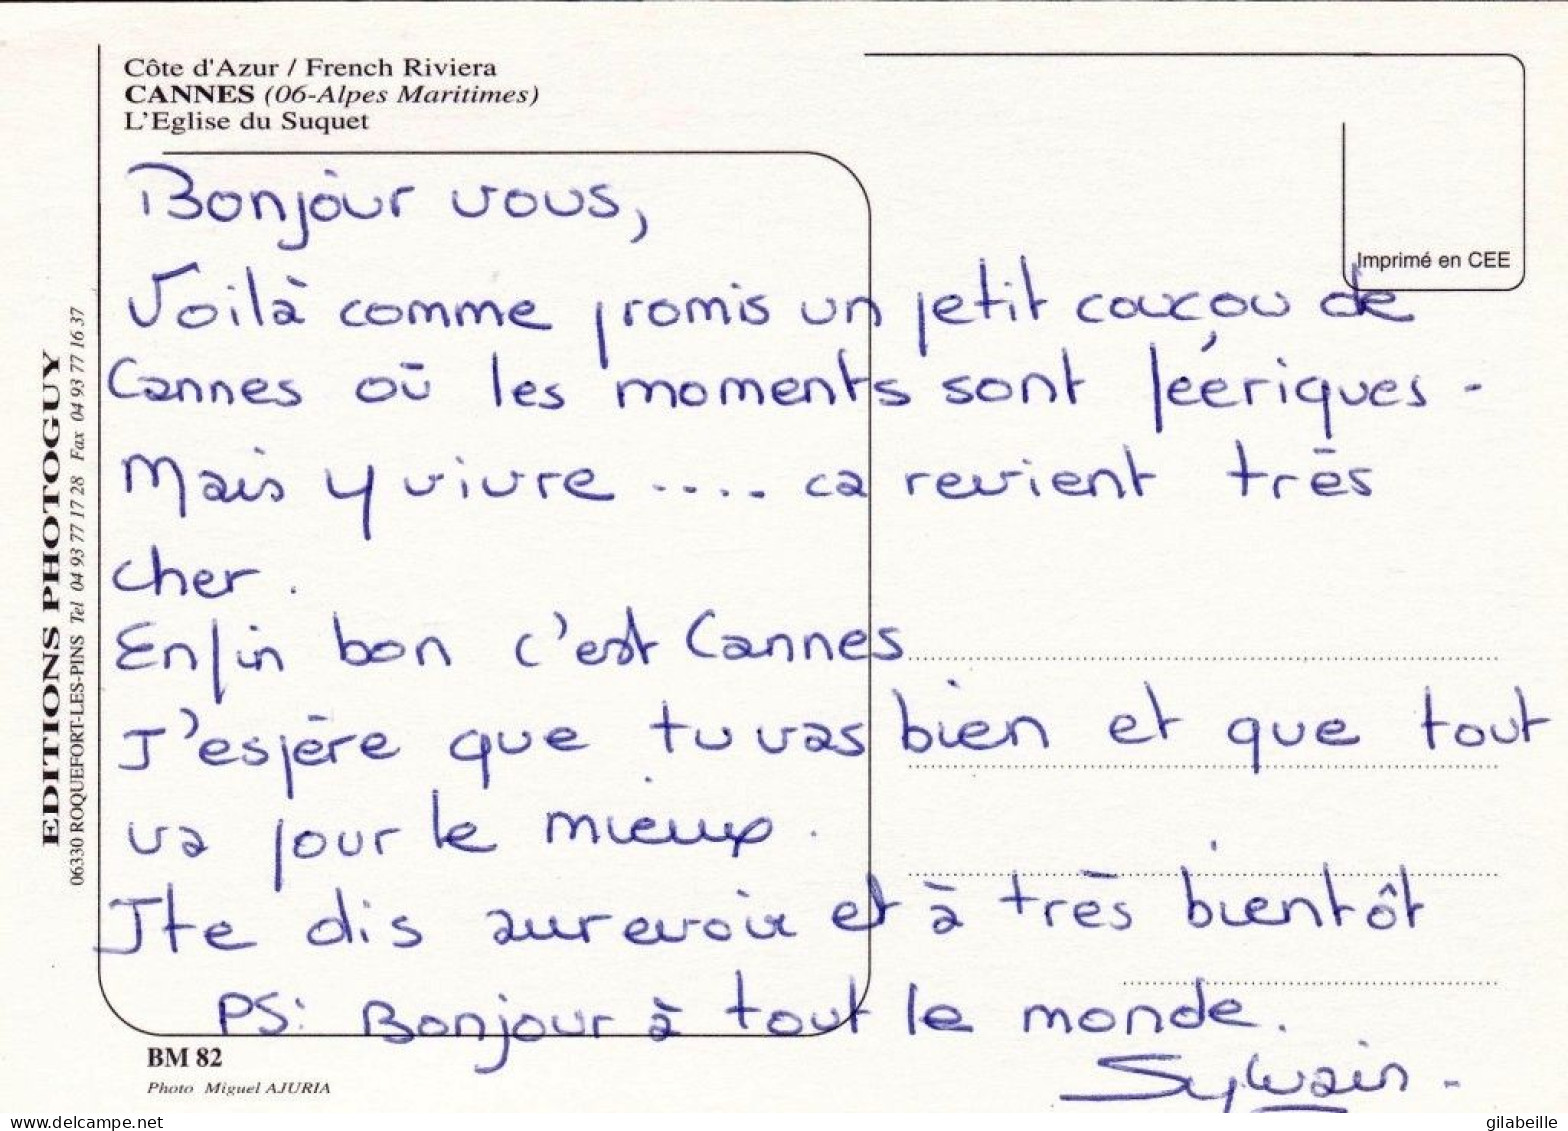 Côte d'Azur / French Riviera
CANNES (06-Alpes Maritimes)
L'Eglise du Suquet
Imprimé en CEE
Bonjour vous,
Voilà comme promis un petit coucou de
Cannes où les moments sont féériques -
Mais y vivre .... ca revient très
cher.
Enfin bon c'est Cannes
J'espère que tu vas bien et que tout
va pour le mieux.
Jte dis aurevoir et à très bientôt
PS: Bonjour à tout le monde.
Sylvain -
EDITIONS PHOTOGUY
06330 ROQUEFORT-LES-PINS Tel 04 93 77 17 28 Fax 04 93 77 16 37
BM 82
Photo Miguel AJURIA
www.delcampe.net
gilabeille